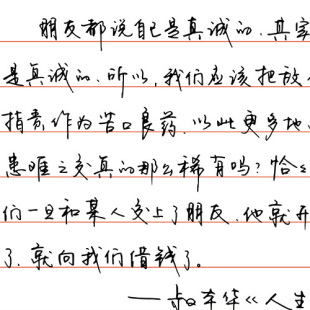 朋友都说自己是真诚的、其实
是真诚的、所以,我们应该把敌人
指责作为苦口良药、以此更多地
患难之交真的那么稀有吗?恰
们一旦和某人交上了朋友、他就开
了、就向我们借钱了。
——叔本华《人生